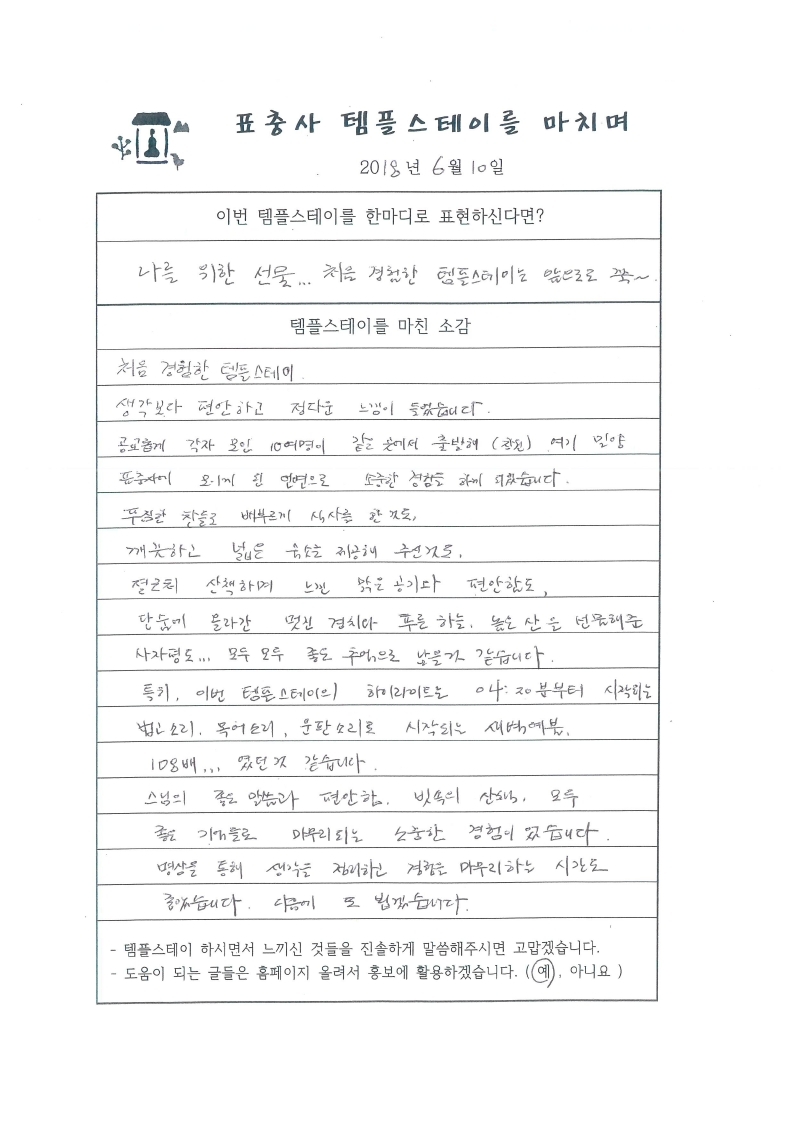 표충사 템플스테이를 마치며
2018년 6월 10일
이번 템플스테이를 한마디로 표현하신다면?
나를 위한 선물... 처음 경험한 템플스테이는 앞으로도 쭉~.
템플스테이를 마친 소감
처음 경험한 템플스테이.
생각보다 편안하고 정다운 느낌이 들었습니다.
공교롭게 각자 모인 10여명이 같은 곳에서 출발해 (창원) 여기 밀양
표충사에 오게 된 인연으로 소중한 경험을 하게 되었습니다.
푸짐한 찬들로 배부르게 식사를 한것도,
깨끗하고 넓은 숙소를 제공해 주신것도,
절근처 산책하며 느낀 맑은 공기와 편안함도,
단숨에 올라간 멋진 경치와 푸른 하늘, 높은 산을 선물해준
사자평도... 모두 모두 좋은 추억으로 남을거 같습니다.
특히, 이번 템플스테이의 하이라이트는 04:20분부터 시작되는
법고소리, 목어소리, 운판소리로 시작되는 새벽예불,
108배... 였던것 같습니다.
스님의 좋은 말씀과 편안함, 빗속의 산책, 모두
좋은 기억들로 마무리되는 소중한 경험이었습니다.
명상을 통해 생각을 정리하고 경험을 마무리하는 시간도
좋았습니다. 다음에 또 뵙겠습니다.
- 템플스테이 하시면서 느끼신 것들을 진솔하게 말씀해주시면 고맙겠습니다.
- 도움이 되는 글들은 홈페이지 올려서 홍보에 활용하겠습니다. (예, 아니요 )